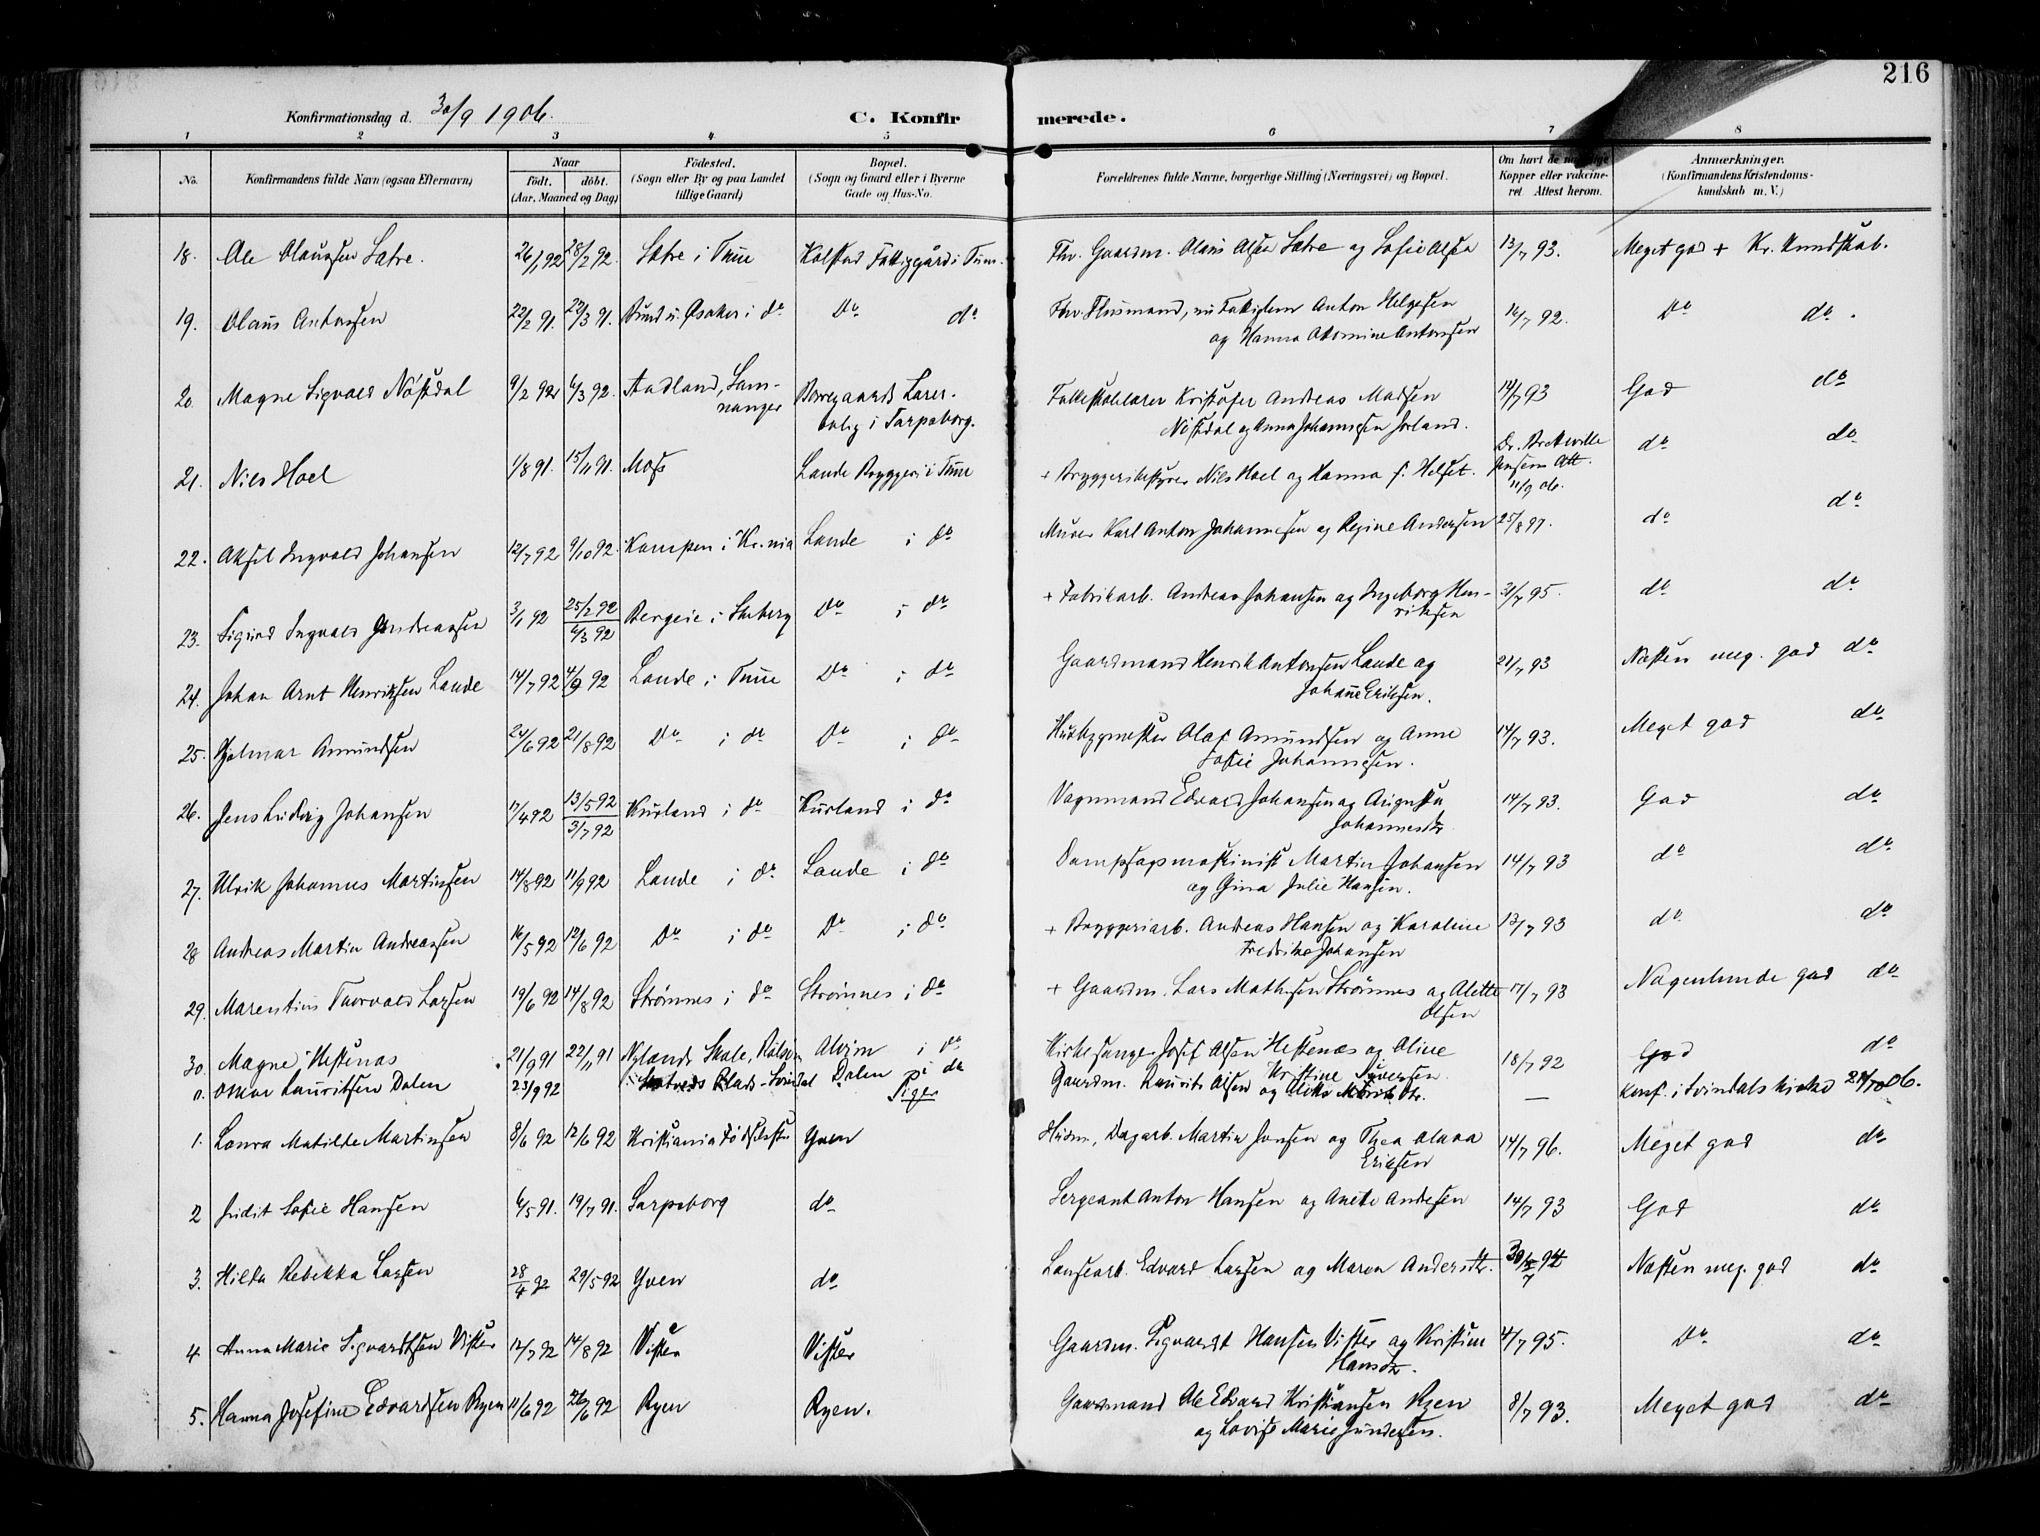 216
Konfirmationsdag d. 30/9 1906. C. Konfirmerede.
1 2 3 4 5 6 7 8
No. Konfirmandens fulde Navn (ogsaa Efternavn) Naar født. døbt. (Aar, Maaned og Dag) Fødested. (Sogn eller By og paa Landet tillige Gaard) Bopæl. (Sogn og Gaard eller i Byerne Gade og Hus-No. Forældrenes fulde Navne, borgerlige Stilling (Næringsvei) og Bopæl. Om havt de naturlige Kopper eller vakcineret. Attest herom. Anmærkninger. (Konfirmandens Kristendomskundskab m. V.)
18. Ole Olaussen Sætre. 26/1 92 28/2 92. Sætre i Tune Kolstad Fattiggård i Tune. Fhv. Gaardm. Olaus Olsen Sætre og Sofie Olsen 13/7 93. Meget god + Kr. kundskab.
19. Olaus Antonsen 22/2 91. 22/3 91. i do Do do Fhv. Husmand, nu Anton Helgesen
og Hanna Antonsen 16/7 92. Do do.
20. Magne Sigvald Nøstdal 9/2 92 6/3 92. Aadland, Samnanger Borregaards Lærerbolig i Sarpsborg. Folkeskolelærer Kristofer Andreas Madsen
Nøstdal og Anna Johannesen 14/7 93 God do
21. Nils Hoel 1/8 91. 15/11 91. Moss Lande Bryggeri i Tune + Bryggeribestyrer Nils Hoel og Hanna f. Helset. Dr. Jensens Att. 11/9 06. do do
22. Aksel Ingvald Johansen 12/7 92 9/10 92. Kampen i Kr.nia Lande i do Murer Karl Anton Johannesen og Regine Andersen 25/8 97. do do
23. Sigurd Ingvald Andreassen 3/1 92 25/2 92 6/3 92 Bergeie i Skeberg Do i do + Fabrikarb. Andreas Johansen og Ingeborg Henriksen 21/7 95. do do
24. Johan Arnt Henriksen Lande 14/7 92 4/9 92 Lande i Tune Do i do Gaardmand Henrik Antonsen Lande og
Johanne Eriksen. 21/7 93 Næsten meg. god do
25. Hjalmar Amundsen 24/6 92 21/8 92 Do i do Do i do Olaf Amundsen og Anne
Sofie Johannesen. 14/7 93. Meget god do
26. Jens Ludvig Johansen 17/4 92 13/5 92 3/7 92 Kurland i do Kurland i do Vognmand Edvard Johansen og Augusta
Johannesdtr. 14/7 93. God do
27. Ulrik Johannes Martinsen 14/8 92 11/9 92 Lande i do Lande i do Dampsagmaskinist Martin Johansen
og Gina Julie Hansen. 14/7 93 do do
28 Andreas Martin Andreassen 16/5 92 12/6 92 Do i do Do i do + Bryggeriarb. Andreas Hansen og Karoline
Fredrikke Johansen 13/7 93 do do
29. Marentius Thorvald Larsen 19/6 92 14/8 92 Strømnes i do Strømnes i do + Gaardm. Lars Mathisen Strømnes og Alette
Olsen 17/7 93 Nogenlunde god do
30. Magne Hestenæs 21/9 91 22/11 91 Nylands Skole, Alvim i do Kirkesanger Josef Olsen Hestenæs og Oline
Kristine Syversen. 18/7 92 God do
n. Oskar Lauritsen Dalen 23/9 92 Plads - Svindal Dalen i do Gaardm. Laurits Olsen — Konf. i Svindals Kirke 06.
Piger
1. Laura Matilde Martinsen 8/6 92 12/6 92 Kristiania Fødselsst. Yven Husm., Dagarb. Martin Jensen og Thea Olava
Eriksen 14/7 96. Meget god do
2 Judit Sofie Hansen 6/5 91. 19/7 91. Sarpsborg do Sergeant Anton Hansen og Anette Andresen 14/7 93 God do
3. Hilda Rebekka Larsen 28/4 92 29/5 92 Yven do Landsearb. Edvard Larsen og Maren Andersdtr. Næsten meg. god do
4 Anna Marie Sigvardtsen Vister 12/7 92 14/8 92 Vister Vister Gaardm. Sigvardt Hansen Vister og Kristine
Hansdtr. 4/7 95. Do do
5. Hanna Josefine Edvardsen Ryen 11/6 92 26/6 92 Ryen Ryen. Gaardmand Ole Edvard Kristiansen Ryen
og Lovise Marie Gundersen. 8/7 93. Meget god do